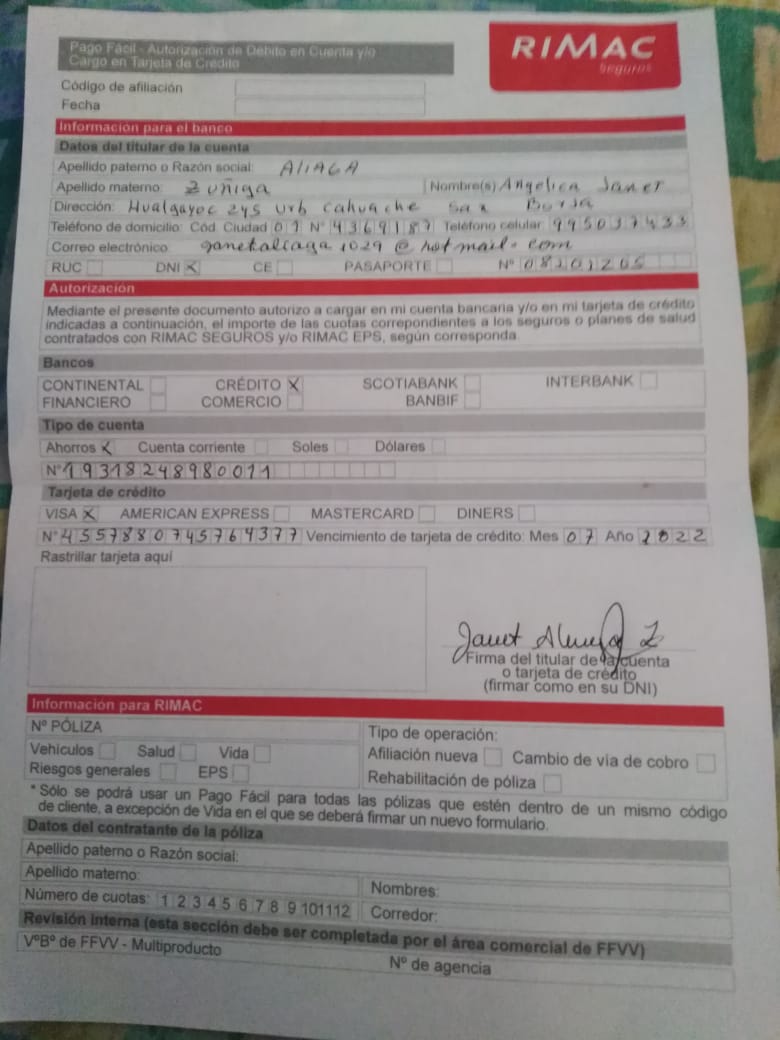 Pago Fácil - Autorización de Débito en Cuenta y/o
Cargo en Tarjeta de Crédito
RIMAC
Seguros
Código de afiliación
Fecha
Información para el banco
Datos del titular de la cuenta
Apellido paterno o Razón social: ALIAGA
Apellido materno: Zuñiga Nombre(s) Angelica Janet
Dirección: Hualgayoc 245 Urb Cahuache San Borja
Teléfono de domicilio: Cód. Ciudad 01 Nº 4369187 Teléfono celular: 995037433
Correo electrónico: janetaliaga1029@hotmail.com
RUC DNI X CE PASAPORTE Nº 08201265
Autorización
Mediante el presente documento autorizo a cargar en mi cuenta bancaria y/o en mi tarjeta de crédito
indicadas a continuación, el importe de las cuotas correpondientes a los seguros o planes de salud
contratados con RIMAC SEGUROS y/o RIMAC EPS, según corresponda.
Bancos
CONTINENTAL CRÉDITO X SCOTIABANK INTERBANK
FINANCIERO COMERCIO BANBIF
Tipo de cuenta
Ahorros X Cuenta corriente Soles Dólares
Nº 19318248980011
Tarjeta de crédito
VISA X AMERICAN EXPRESS MASTERCARD DINERS
Nº 4557880745764377 Vencimiento de tarjeta de crédito: Mes 07 Año 2022
Rastrillar tarjeta aquí
Janet Aliaga Z
Firma del titular de la cuenta
o tarjeta de crédito
(firmar como en su DNI)
Información para RIMAC
Nº PÓLIZA Tipo de operación:
Vehículos Salud Vida Afiliación nueva Cambio de vía de cobro
Riesgos generales EPS Rehabilitación de póliza
* Sólo se podrá usar un Pago Fácil para todas las pólizas que estén dentro de un mismo código
de cliente, a excepción de Vida en el que se deberá firmar un nuevo formulario.
Datos del contratante de la póliza
Apellido paterno o Razón social:
Apellido materno: Nombres:
Número de cuotas: 1 2 3 4 5 6 7 8 9 10 11 12 Corredor:
Revisión interna (esta sección debe ser completada por el área comercial de FFVV)
VºBº de FFVV - Multiproducto Nº de agencia